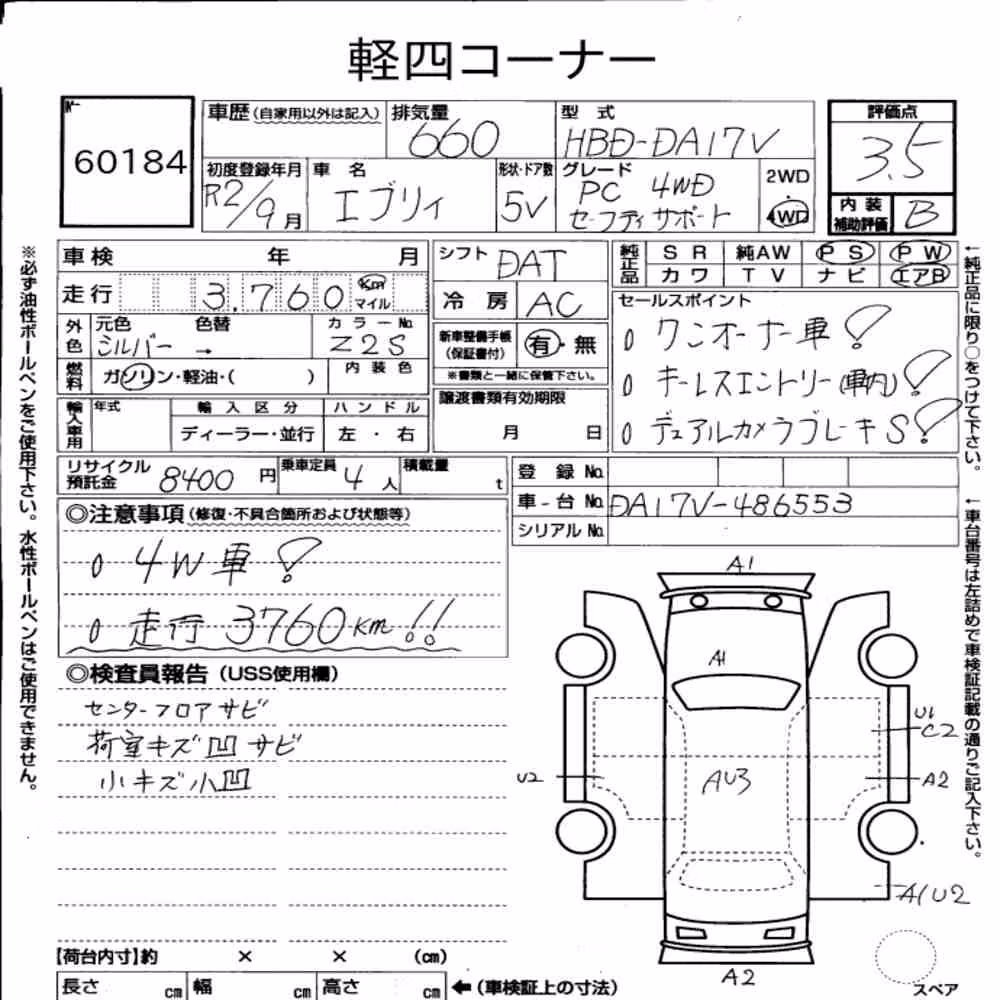 軽四コーナー
60184
車歴(自家用以外は記入)
排気量
660
型 式
HBD-DA17V
評価点
3.5
初度登録年月
R2/9月
車 名
エブリィ
形状・ドア数
5V
グレード
PC 4WD
セーフティサポート
2WD
4WD
内装
補助評価
B
車検 年 月
シフト
DAT
純正品
SR 純AW PS PW
カワ TV ナビ エアB
走行 3,760 Km マイル
冷 房
AC
セールスポイント
外色
元色 色替
シルバー →
カラーNo.
Z2S
新車整備手帳
(保証書付)
有・無
※書類と一緒に保管下さい。
ワンオーナー車!
燃料
ガソリン・軽油・( )
内装色
キーレスエントリー(車内)!
輸入車用
年式
輸入区分
ハンドル
ディーラー・並行
左・右
譲渡書類有効期限
月 日
デュアルカメラブレーキS!
リサイクル
預託金
8400円
乗車定員
4人
積載量
t
登録No.
車-台No.
DA17V-486553
シリアルNo.
◎注意事項(修復・不具合箇所および状態等)
4W車!
走行 3760km!!
◎検査員報告(USS使用欄)
センターフロアサビ
荷室キズ凹サビ
小キズ小凹
A1
A1
U1
C2
U2
AU3
A2
A1U2
A2
スペア
【荷台内寸】約 × × (cm)
長さ cm 幅 cm 高さ cm ←(車検証上の寸法)
※必ず油性ボールペンをご使用下さい。水性ボールペンはご使用できません。
←純正品に限り○をつけて下さい。
←車台番号は左詰めで車検証記載の通りご記入下さい。